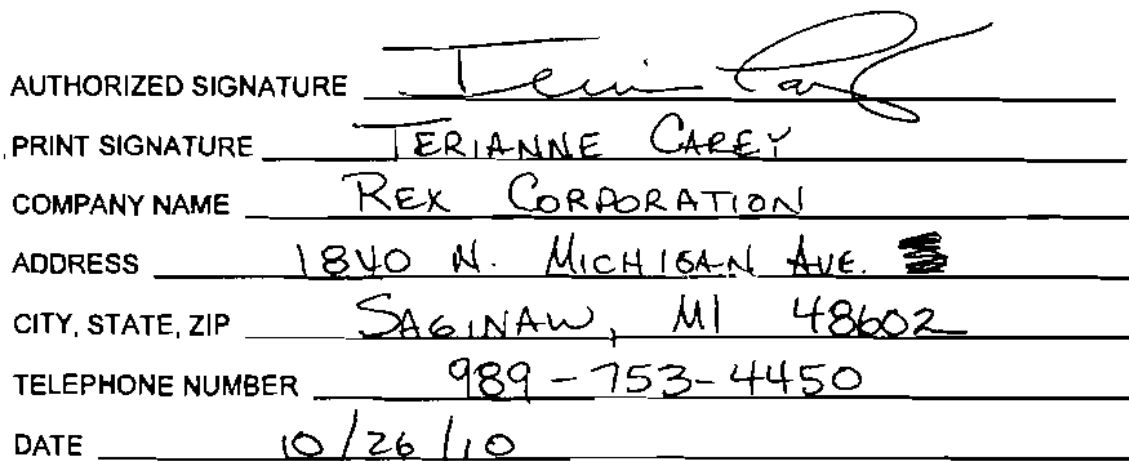 AUTHORIZED SIGNATURE
PRINT SIGNATURE TERIANNE CAREY
COMPANY NAME REX CORPORATION
ADDRESS 1840 N. MICHIGAN AVE.
CITY, STATE, ZIP SAGINAW, MI 48602
TELEPHONE NUMBER 989-753-4450
DATE 10/26/10